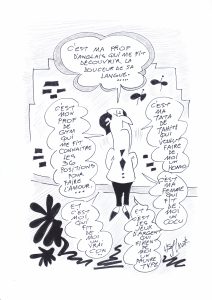 C'EST MA PROF
D'ANGLAIS QUI ME FIT
DÉCOUVRIR LA
DOUCEUR DE SA
LANGUE...
C'EST
MON
PROF
DE
GYM
QUI ME FIT
CONNAITRE
LES 36
POSITIONS
POUR
FAIRE
L'AMOUR...
C'EST
MA
TATA
DE
TAHITI
QUI
VOULUT
FAIRE
DE
MOI
UN HOMO
C'EST
MA
FEMME
QUI
FIT
DE MOI
UN
COCU
ET
C'EST
QUI
FIT
DE
MOI
UN
VRAI
CON
C'EST
D'ARGENT
QUI
FIRENT
DE
MOI
PAUVRE
TYPE